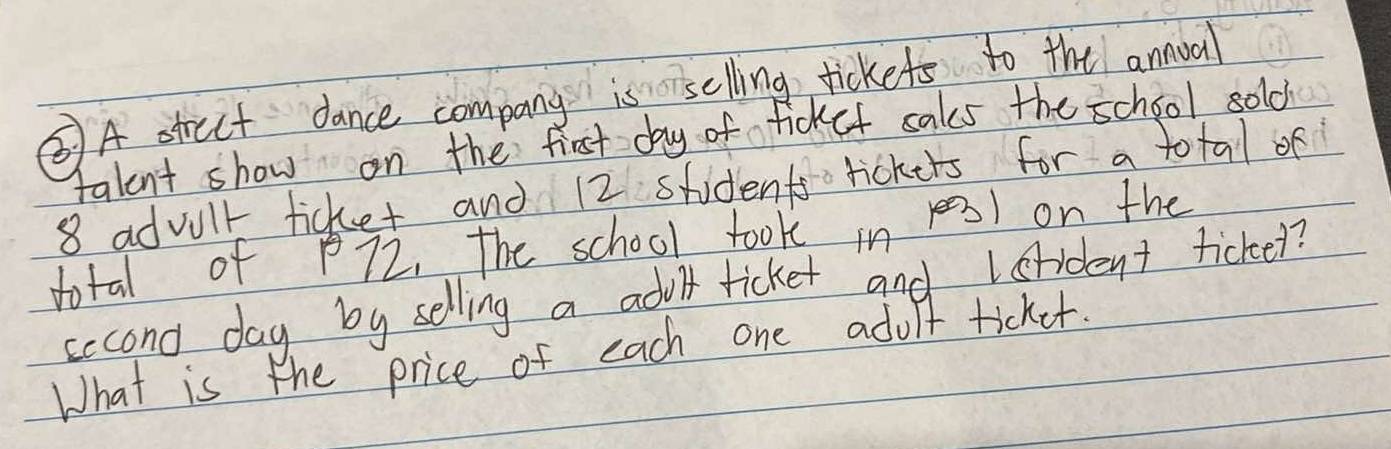 6.) A street dance company is selling tickets to the annual
talent show on the first day of ticket sales the school sold
8 advult ticket and 12 students tickets for a total of
total of ₱72. The school took in ₱31 on the
second day by selling a adult ticket and 1 student ticket?
What is the price of each one adult ticket.